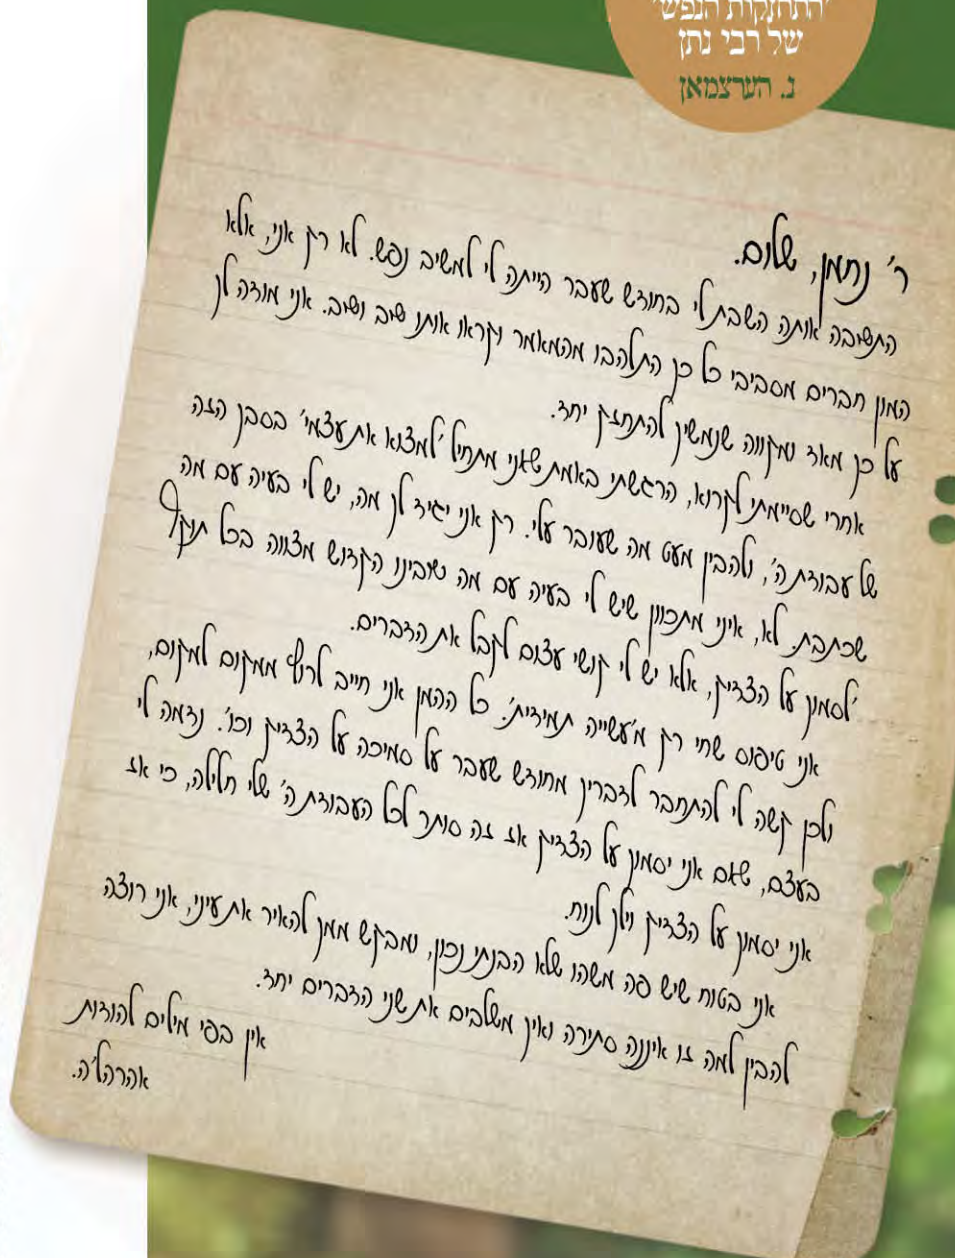 'התחזקות הנפש'
של רבי נתן
נ. הערצמאן
ר' נחמן, שלום.
התשובה אותה השבת לי בחודש שעבר הייתה לי למשיב נפש. לא רק אני, אלא
המון חברים מסביבי כל כן התלהבו מהמאמר וקראו אותו שוב ושוב. אני מודה לך
על כן מאד ומקווה שנמשיך להתחזק יחד.
אחרי שסיימתי לקרוא, הרגשתי באמת שאני מתחיל 'למצוא את עצמי' בסבך הזה
של עבודת ה', ולהבין מעט מה שעובר עלי. רק אני יגיד לך מה, יש לי בעיה עם מה
שכתבת. לא, איני מתכוון שיש לי בעיה עם מה שרבינו הקדוש מצווה בכל תוקף
'לסמוך על הצדיק, אלא יש לי קושי עצום לקבל את הדברים.
אני טיפוס שחי רק מ'עשייה תמידית'. כל הזמן אני חייב לרוץ ממקום למקום,
ולכן קשה לי להתחבר לדבריך מחודש שעבר על סמיכה על הצדיק וכו'. נדמה לי
בעצם, שאם אני יסמוך על הצדיק אז זה סותר לכל העבודת ה' שלי חלילה, כי אז
אני יסמוך על הצדיק וילך לנוח.
אני בטוח שיש פה משהו שלא הבנתי נכון, ומבקש ממך להאיר את עיני, אני רוצה
להבין למה זו איננה סתירה ואיך משלבים את שני הדברים יחד.
אין בפי מילים להודות
אהרל'ה.